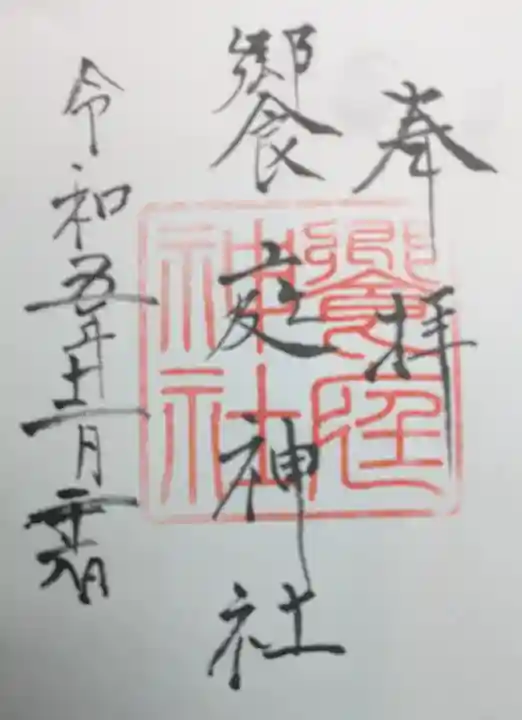 奉拝
饗庭神社
令和五年十一月二十六日
饗庭
神社